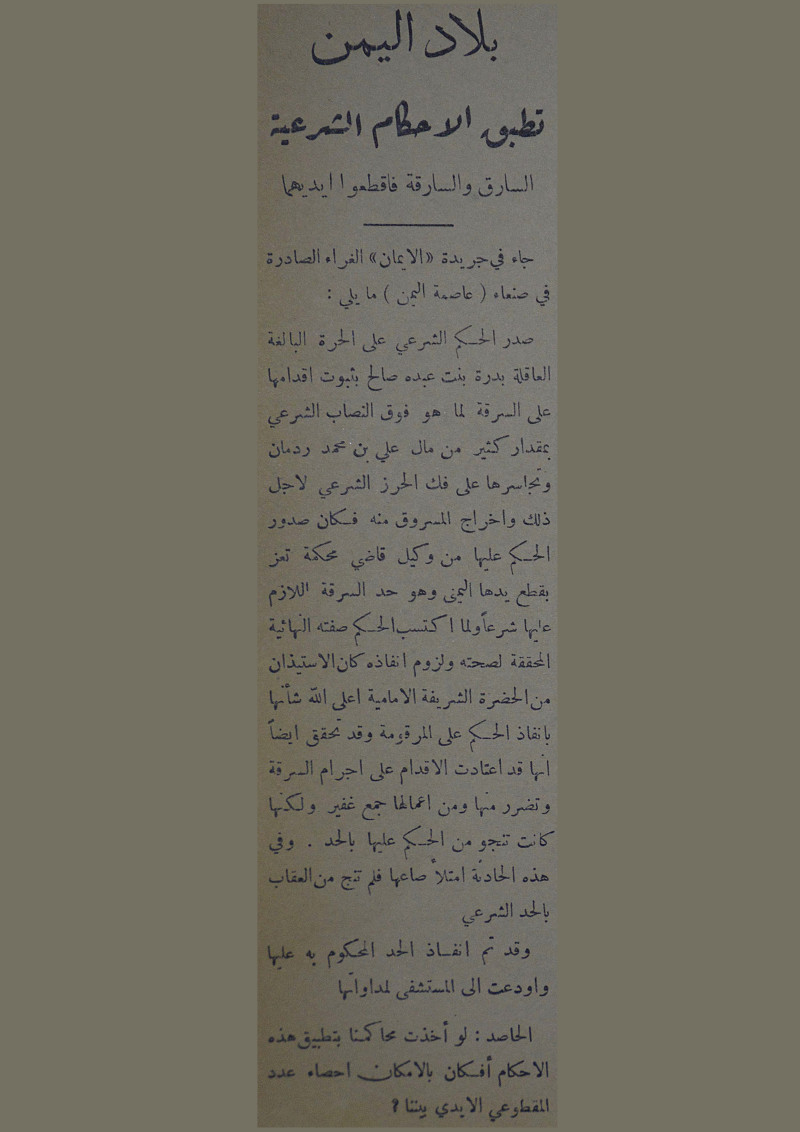 بلاد اليمن
تطبق الاحكام الشرعية
السارق والسارقة فاقطعوا ايديهما
جاء في جريدة «الايمان» الغراء الصادرة
في صنعاء ( عاصمة اليمن ) ما يلي :
صدر الحكم الشرعي على الحرة البالغة
العاقلة بدرة بنت عبده صالح بثبوت اقدامها
على السرقة لما هو فوق النصاب الشرعي
بمقدار كثير من مال علي بن محمد ردمان
وتجاسرها على فك الحرز الشرعي لاجل
ذلك واخراج المسروق منه فكان صدور
الحكم عليها من وكيل قاضي محكمة تعز
بقطع يدها اليمنى وهو حد السرقة اللازم
عليها شرعاً ولما اكتسب الحكم صفته النهائية
المحققة لصحته ولزوم انفاذه كان الاستيذان
من الحضرة الشريفة الامامية اعلى الله شأنها
بانفاذ الحكم على المرقومة وقد تحقق ايضاً
انها قد اعتادت الاقدام على اجرام السرقة
وتضرر منها ومن اعمالها جمع غفير ولكنها
كانت تنجو من الحكم عليها بالحد . وفي
هذه الحادثة امتلأ صاعها فلم تنج من العقاب
بالحد الشرعي
وقد تم انفاذ الحد المحكوم به عليها
واودعت الى المستشفى لمداواتها
الحاصد : لو أخذت محاكمنا بتطبيق هذه
الاحكام أفكان بالامكان احصاء عدد
المقطوعي الايدي بيننا ؟